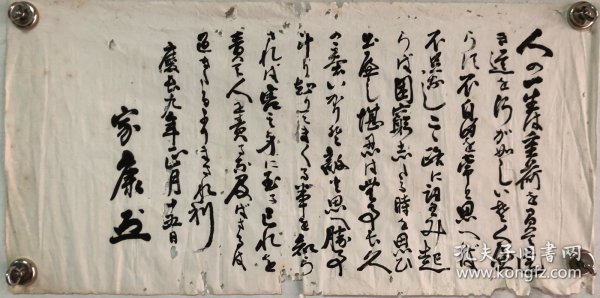 人の一生は重荷を負て遠
き道を行が如しいそぐべか
らず不自由を常と思へば
不足なしこゝろに望起
らば困窮したる時を思ひ
出すべし堪忍は無事長久
の基いかりは敵と思へ勝事
計り知りてまくる事を知ら
されは害其身に至る己れを
責て人を責るな及ばざるは
過たるよりまされ利
慶長九年正月十五日
家康
孔夫子旧书网
www.kongfz.com